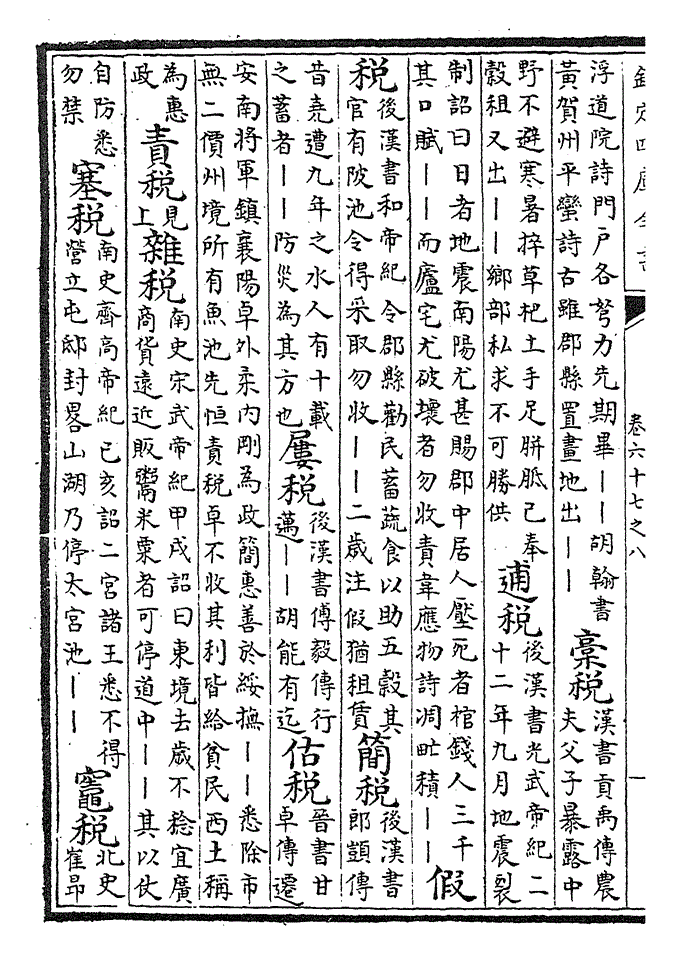 欽定四庫全書 卷六十七之八 一
浮道院詩門戶各努力先期畢——胡翰書
黃賀州平蠻詩古雖郡縣置畫地出——
稾税
漢書貢禹傳農
夫父子暴露中
野不避寒暑捽草杷土手足胼胝已奉
穀租又出——鄉部私求不可勝供
逋税
後漢書光武帝紀二
十二年九月地震裂
制詔曰日者地震南陽尤甚賜郡中居人壓死者棺錢人三千
其口賦——而廬宅尤破壞者勿收責韋應物詩凋甿積——
假
税
後漢書和帝紀令郡縣勸民蓄蔬食以助五穀其
官有陂池令得采取勿收——二歲注假猶租賃
簡税
後漢書
郎顗傳
昔堯遭九年之水人有十載
之蓄者——防災為其方也
屢税
後漢書傅毅傳行
邁——胡能有迄
估税
晉書甘
卓傳遷
安南將軍鎮襄陽卓外柔內剛為政簡惠善於綏撫——悉除市
無二價州境所有魚池先恒責税卓不收其利皆給貧民西土稱
為惠
政
責税
見
上
雜税
南史宋武帝紀甲戌詔曰東境去歲不稔宜廣
商貨遠近販鬻米粟者可停道中——其以仗
自防悉
勿禁
塞税
南史齊高帝紀已亥詔二宮諸王悉不得
營立屯邸封畧山湖乃停太宮池——
竈税
北史
崔昂